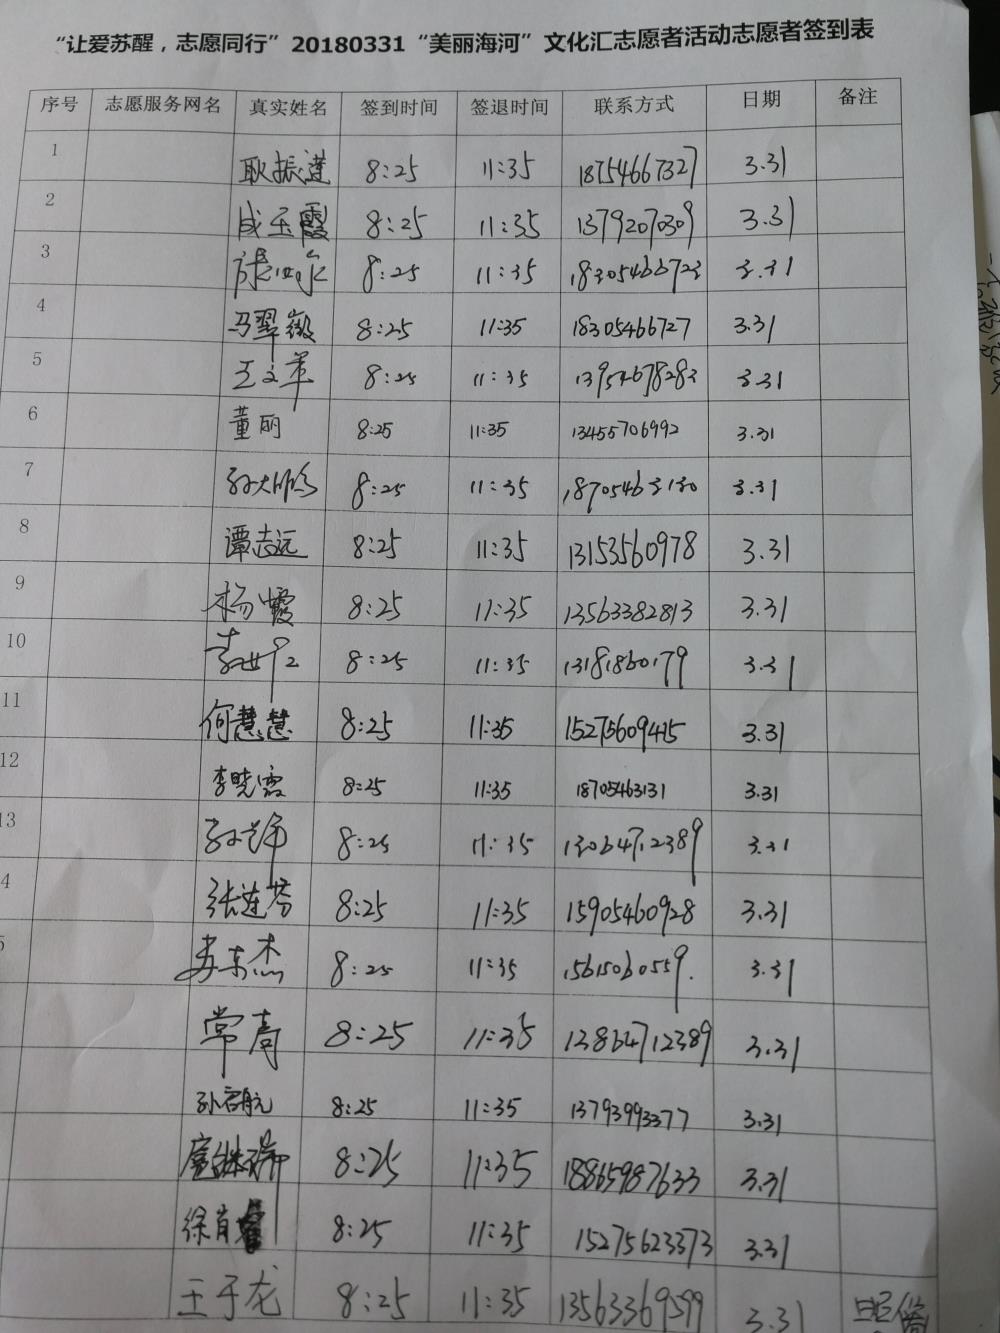 “让爱苏醒，志愿同行”20180331“美丽海河”文化汇志愿者活动志愿者签到表
序号 志愿服务网名 真实姓名 签到时间 签退时间 联系方式 日期 备注
1 耿振莲 8:25 11:35 18754667327 3.31
2 成玉霞 8:25 11:35 13792070309 3.31
3 8:25 11:35 18305466723 3.31
4 马翠薇 8:25 11:35 18305466727 3.31
5 王文革 8:25 11:35 13954678282 3.31
6 董丽 8:25 11:35 13455706992 3.31
7 8:25 11:35 18705463130 3.31
8 谭志远 8:25 11:35 13153560978 3.31
9 杨霞 8:25 11:35 13563382813 3.31
10 8:25 11:35 13181860179 3.31
11 何慧慧 8:25 11:35 15275609415 3.31
12 李晓霞 8:25 11:35 18705463131 3.31
13 8:25 11:35 13064712389 3.31
4 张连芬 8:25 11:35 15905460928 3.31
5 苏东杰 8:25 11:35 15615060559. 3.31
常青 8:25 11:35 13864712389 3.31
孙启航 8:25 11:35 13793993377 3.31
8:25 11:35 18865987633 3.31
徐肖 8:25 11:35 15275623373 3.31
王于龙 8:25 11:35 13563369599 3.31